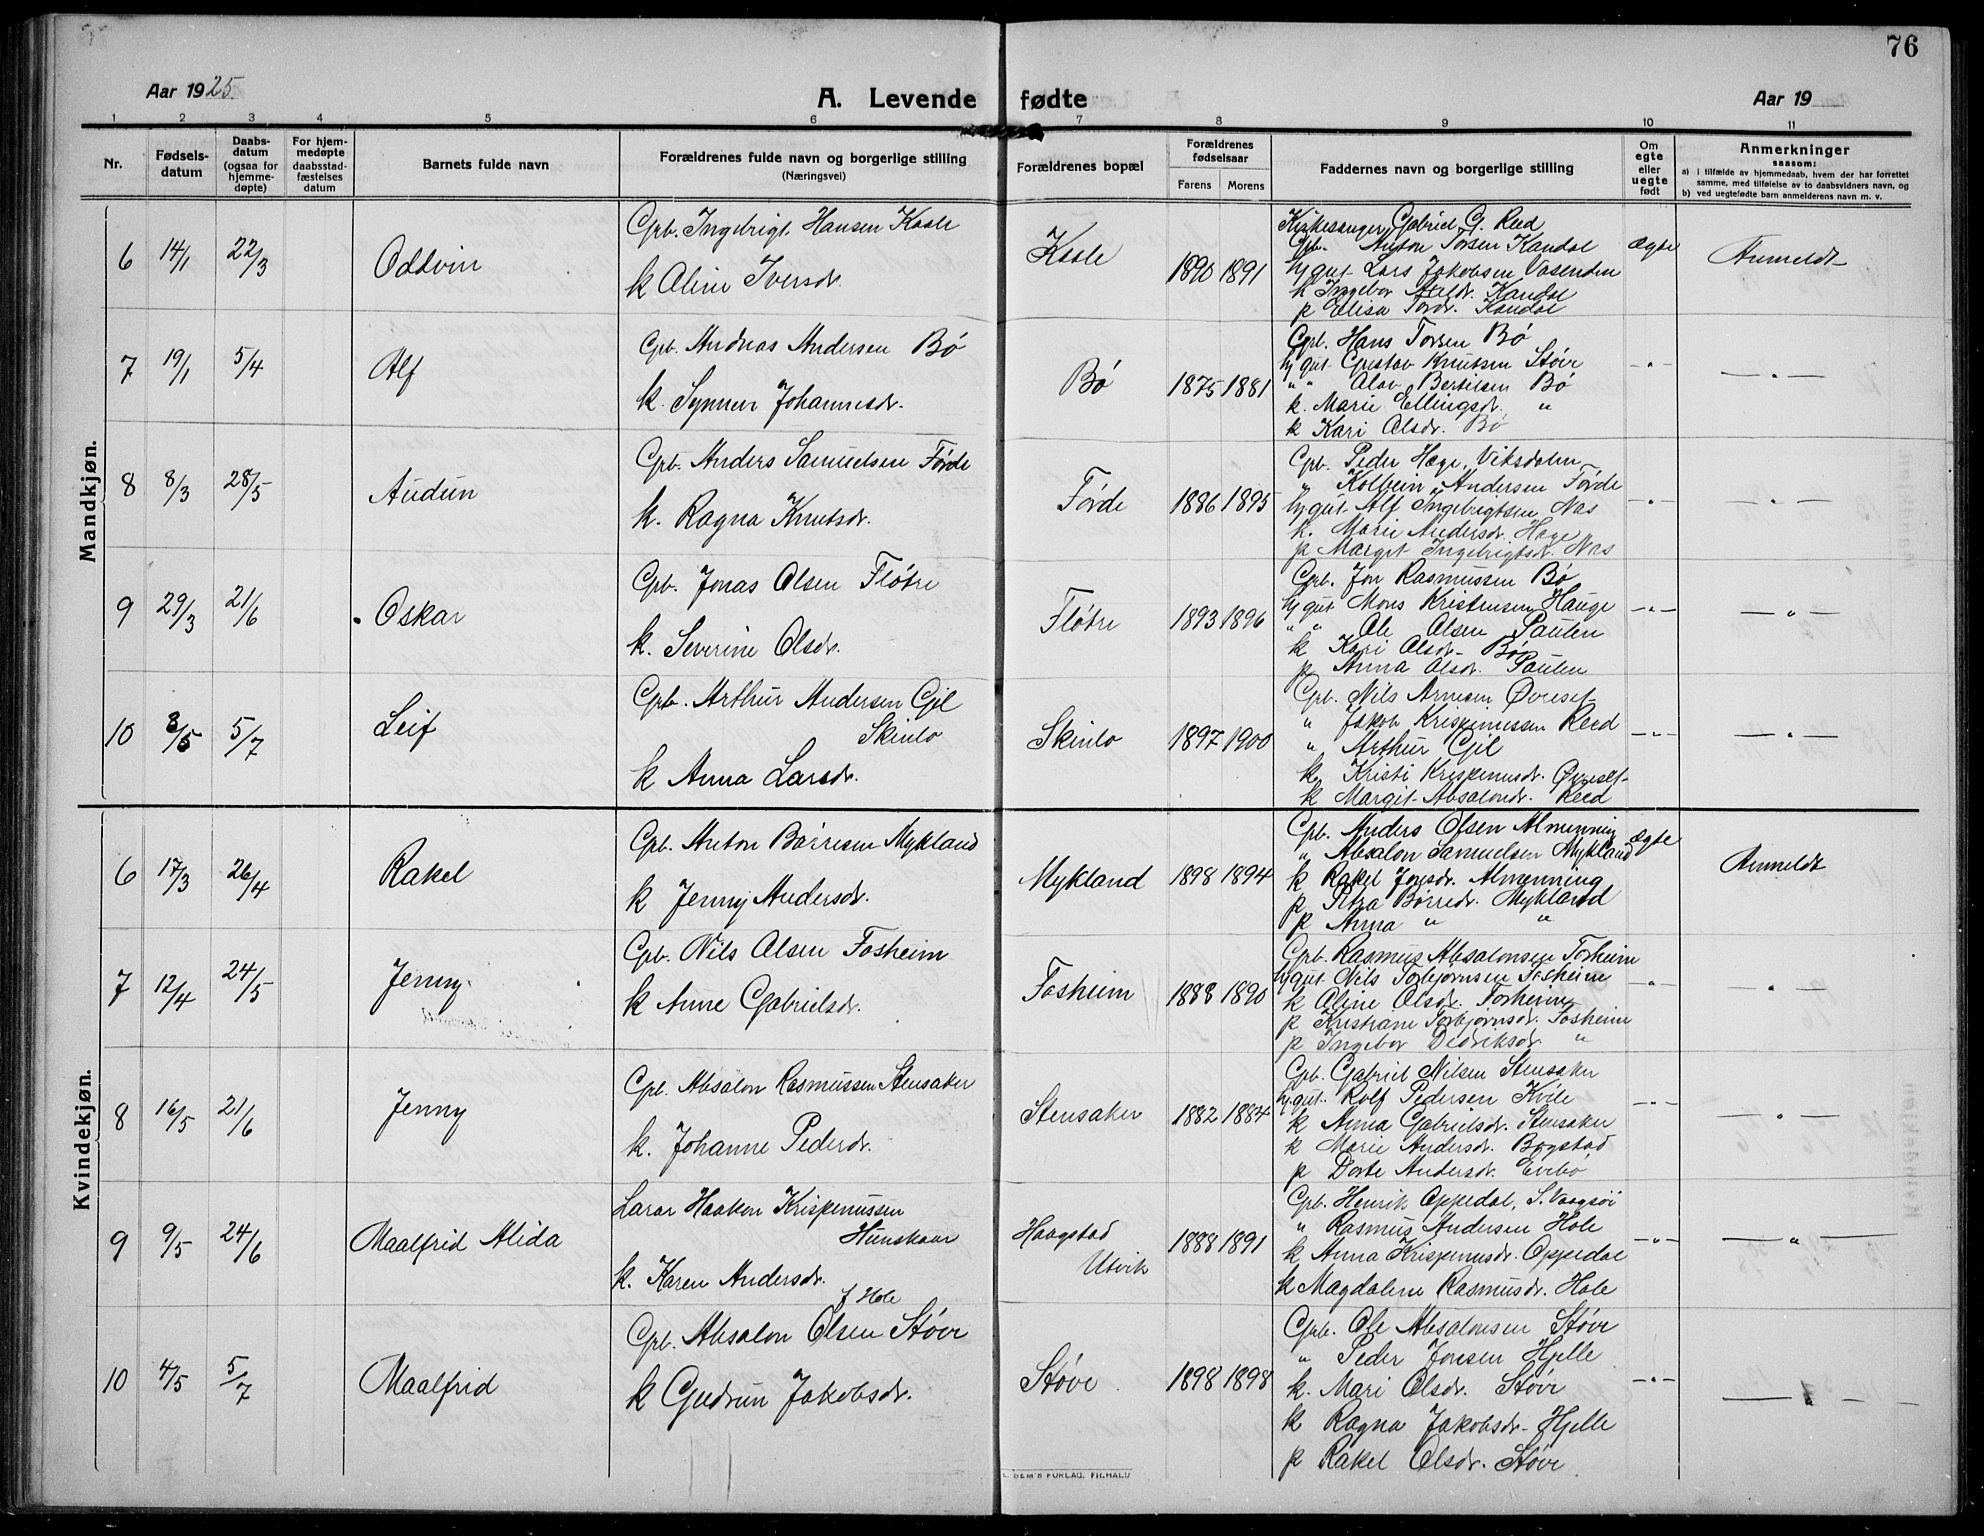 76
Aar 1925
A. Levende fødte
Aar 19
1 2 3 4 5 6 7 8 9 10 11
Nr.
Fødsels-
datum
Daabs-
datum
(ogsaa for
hjemme-
døpte)
For hjem-
medøpte
daabsstad-
fæstelses
datum
Barnets fulde navn
Forældrenes fulde navn og borgerlige stilling
(Næringsvei)
Forældrenes bopæl
Forældrenes
fødselsaar
Farens Morens
Faddernes navn og borgerlige stilling
Om
egte
eller
uegte
født
Anmerkninger
saasom:
a) i tilfælde av hjemmedaab, hvem der har forrettet
samme, med tilføielse av to daabsvidners navn, og
b) ved uegtefødte barn anmelderens navn m. v.
Mandkjøn.
6 14/1 22/3 Oddvin
Grb. Ingebrigt Hansen Kaale
k Aline Iversdr.
Kaale 1890 1891
Kirkesanger Gabriel G. Reed
Grb. Anton Torsen Kandal
Ugut Lars Jakobsen Vasenden
k Ingebor Axeldr. Kandal
p Elisa Tordr. Kandal
Ægte Anmeldt
7 19/1 5/4 Alf
Grb. Andreas Andersen Bø
k. Synneu Johannesdr.
Bø 1875 1881
Grb. Hans Torsen Bø
Ugut Gustav Knutsen Støve
" " Olav Bertelsen Bø
k. Marie Ellingsdr. "
k Kari Olsdr. Bø
-"- — " —
8 8/3 28/5 Audun
Grb. Anders Samuelsen Førde
k. Ragna Knutsdr.
Førde 1886 1895
Grb. Peder Hage, Viksdalen
" Kolbein Andersen Førde
Ugut Alf Ingebrigtsen Nas
k. Marie Andersdr. Hage
p Margit Ingebrigtsdr. Nas
-"- — " —
9 29/3 21/6 Oskar
Grb. Jonas Olsen Fløtre
k. Severine Olsdr.
Fløtre 1893 1896
Grb. Jon Rasmussen Bø
Ugut Mons Kristensen Hauge
" " Ole Olsen Paulen
k Kari Olsdr Bø
p Anna Olsdr. Paulen
-"- — " —
10 8/5 5/7 Leif
Grb. Arthur Andersen Gjl
Skinlo
k Anna Larsdr.
Skinlo 1897 1900
Grb. Nils Arnesen Øvreset
" Jakob Krispinussen Reed
" Arthur Gjl
k. Kristi Krispinusdr. Øvreset
k Margit Absalondr. Reed
-"- — " —
Kvindekjøn.
6 17/3 26/4 Rakel
Grb. Anton Børresen Mykland
k Jenny Andersdr.
Mykland 1898 1894
Grb. Anders Olsen Almenning
" Absalon Samuelsen Mykland
k Rakel Jonsdr. Almenning
p Petra Børredr. Mykland
p Anna " "
Ægte Anmeldt
7 12/4 24/5 Jenny
Grb. Nils Olsen Fosheim
k Anne Gabrielsdr.
Fosheim 1888 1890
Grb. Rasmus Absalonsen Fosheim
Ugut Nils Torbjørnsen Fosheim
k Aline Olsdr. Fosheim
p Kristiane Torbjørnsdr. Fosheim
p Ingebor Didriksdr. "
-"- — " —
8 16/5 21/6 Jenny
Grb. Absalon Rasmussen Stensaker
k. Johanne Pedersdr.
Stensaker 1882 1884
Grb. Gabriel Nilsen Stensaker
Ugut. Rolf Pedersen Kvile
k Anna Gabrielsdr. Stensaker
k Marie Andersdr. Bogstad
p Dorte Andersdr. Evebø
-"- — " —
9 9/5 24/6 Maalfrid Alida
Lærar Haakon Krispenussen
Hunskaar
k. Karen Andersdr.
f. Hole
Haagstad
Utvik
1888 1891
Grb. Henrik Oppedal, S. Vaagsøi
" Rasmus Andersen Hole
k Anna Krispenusdr. Oppedal
k Magdalene Rasmusdr. Hole
-"- — " —
10 4/5 5/7 Maalfrid
Grb. Absalon Olsen Støve
k Gudrun Jakobsdr.
Støve 1898 1898
Grb. Ole Absalonsen Støve
" Peder Jonsen Hjelle
k. Mari Olsdr. Støve
k Ragna Jakobsdr Hjelle
p Rakel Olsdr. Støve
-"- — " —
SEM'S FORLAG. FR.HALD